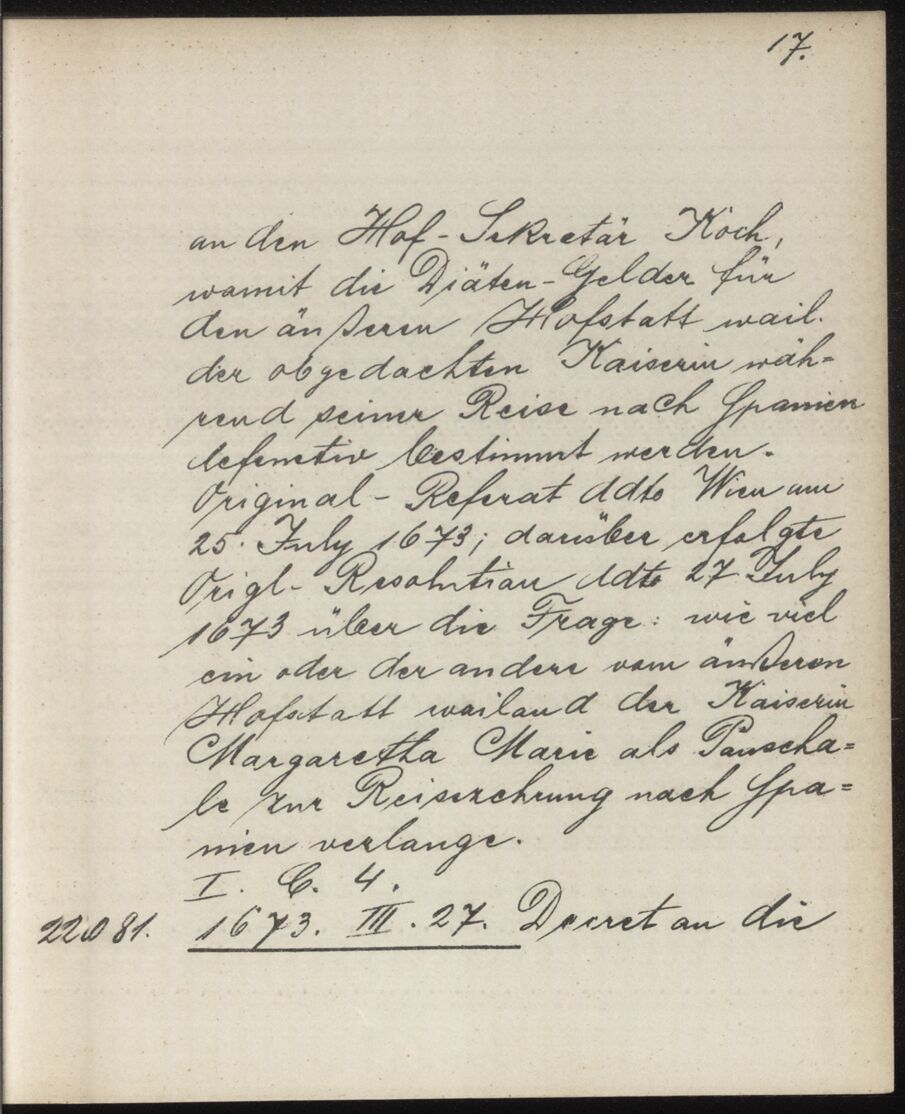 17.
an den Hof-Sekretär Koch,
womit die Diäten-Gelder für
den äußeren Hofstatt wail.
der obgedachten Kaiserin wäh=
rend seiner Reise nach Spanien
defenetiv bestimmt werden.
Original-Referat ddto Wien am
25. July 1673; darüber erfolgte
Origl-Resolution ddto 27 July
1673 über die Frage: wie viel
ein oder der andere vom äußeren
Hofstatt wailand der Kaiserin
Margaretha Marie als Pauscha=
le zur Reisezehrung nach Spa=
nien verlange.
I. C. 4.
1673. III. 27. Decret an die